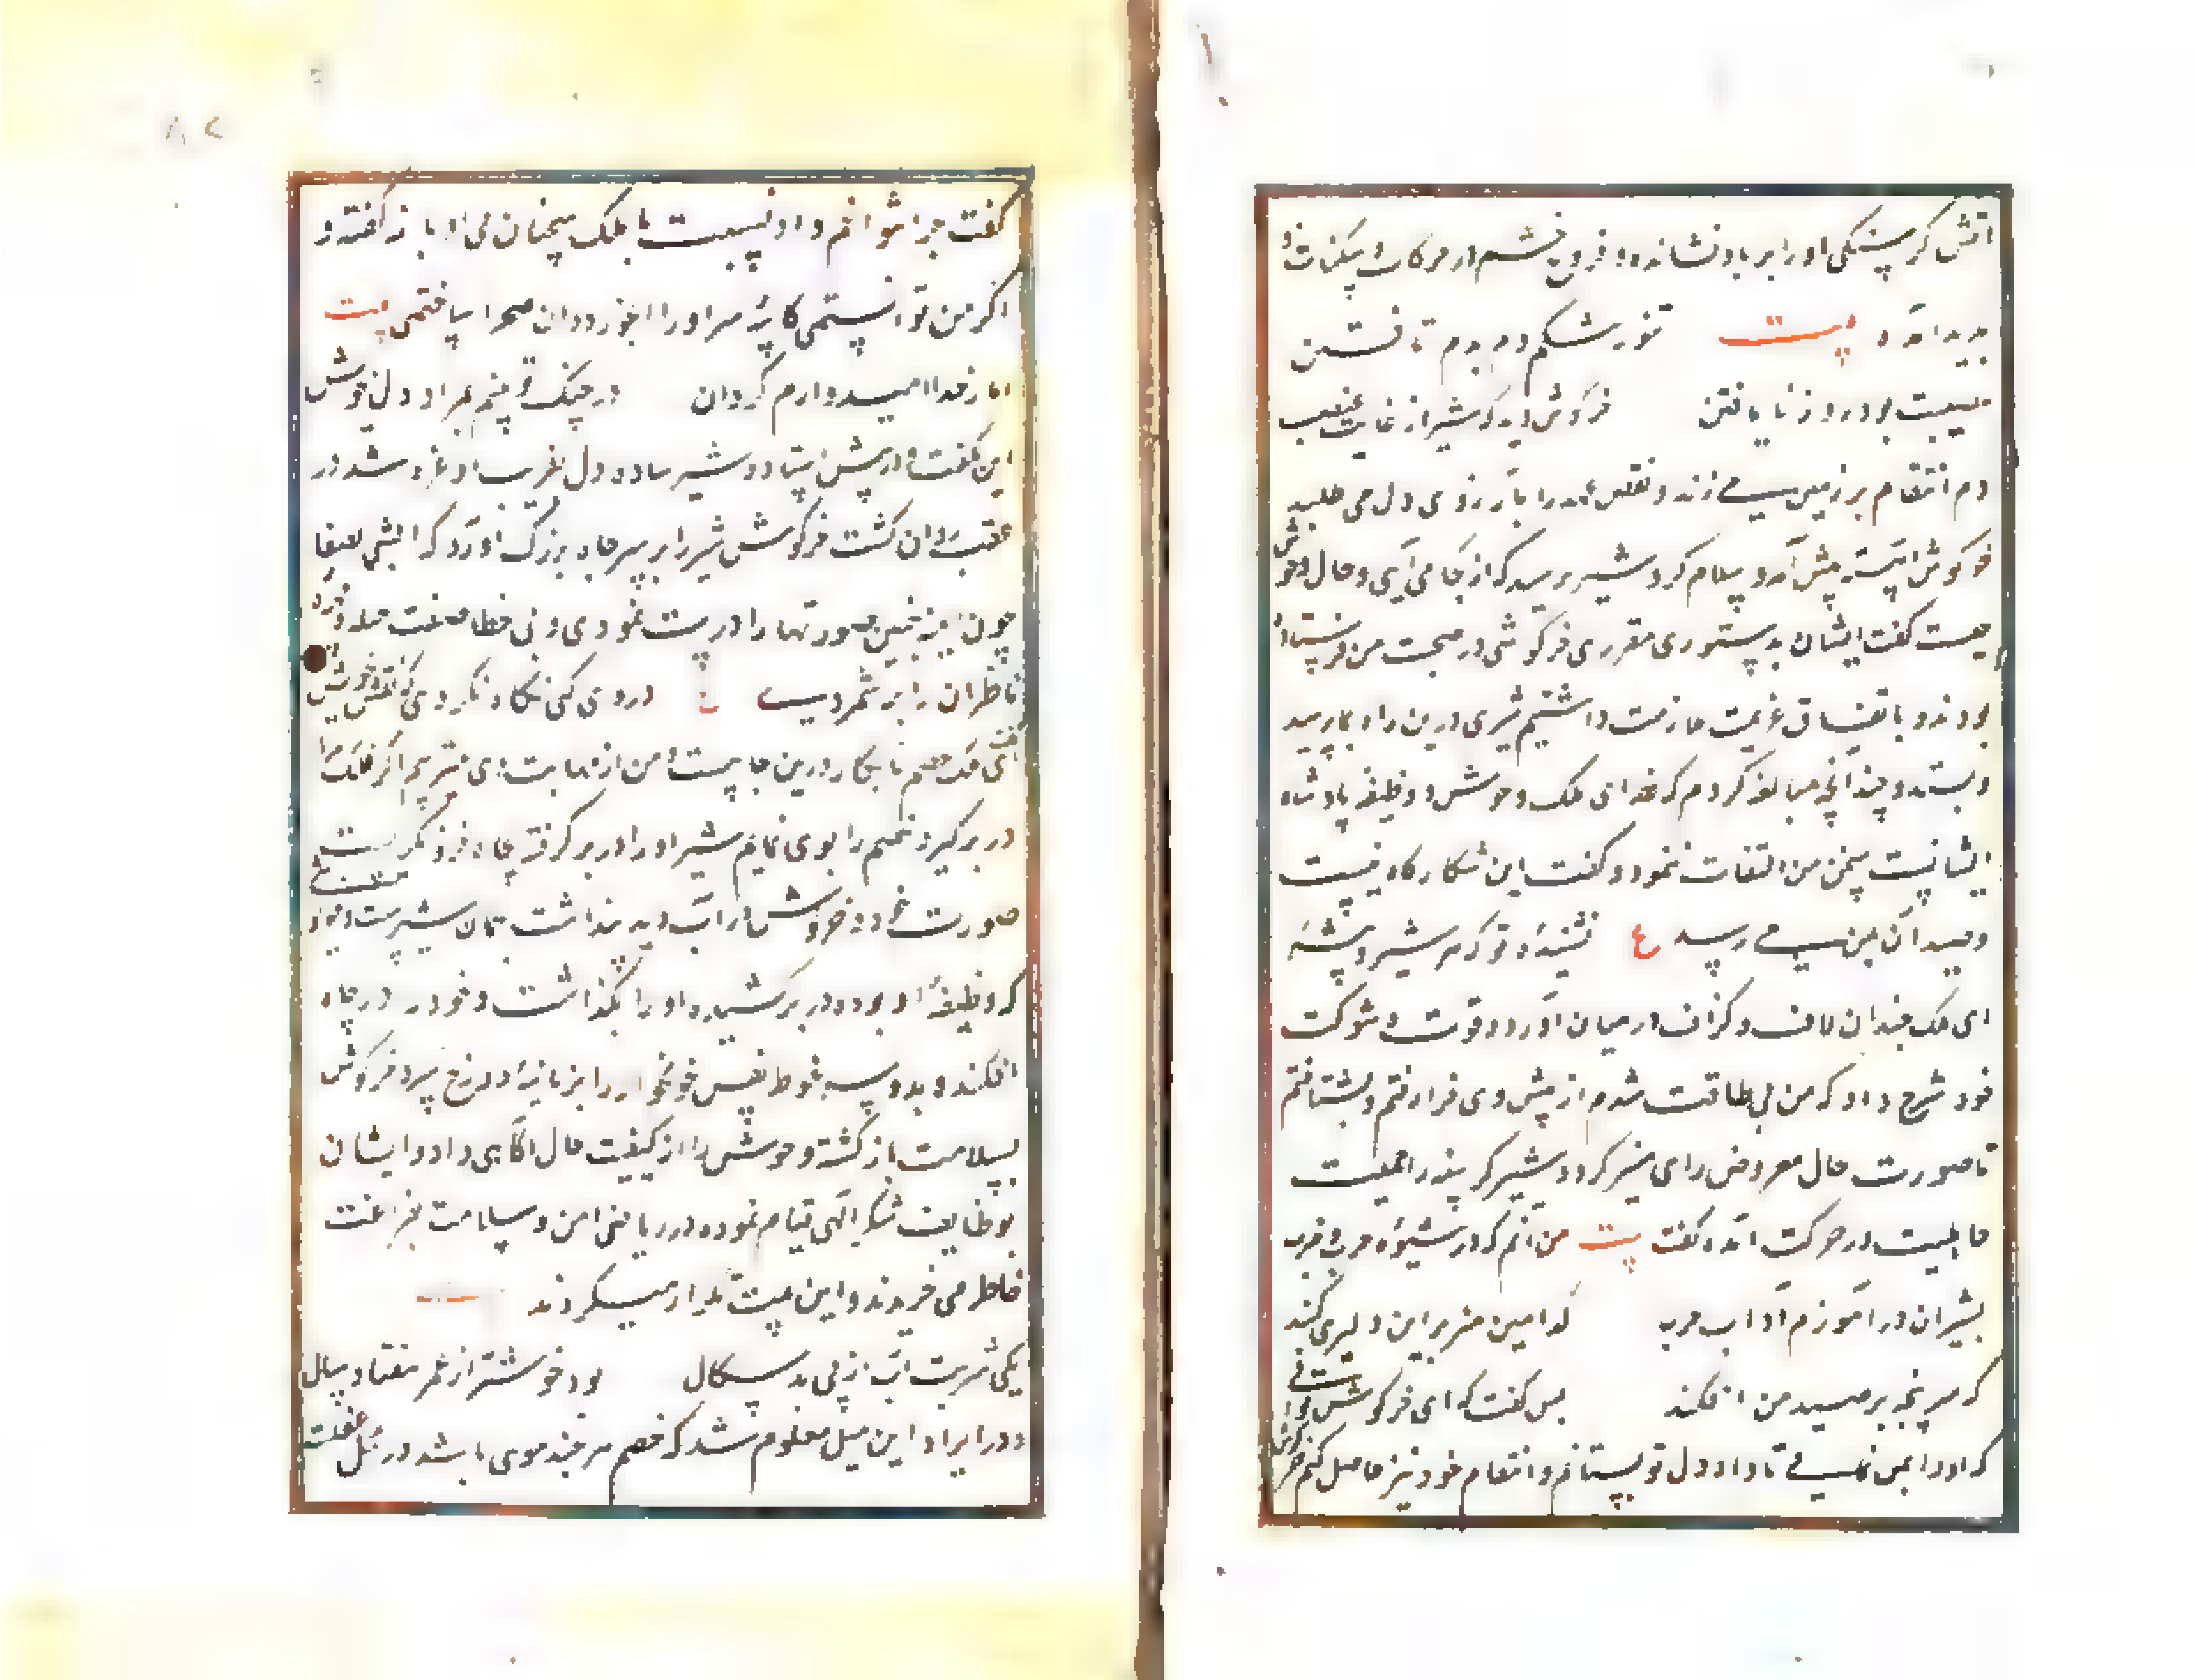 آتش گرسنگی او را بر باد نشانده و فروغ خشم در حرکات و سکنات او
پدید آمده بیت تنور شکم دم بدم تافتن
مصیبت بود روز نایافتن خرگوش دید که شیر از غایت غضب
دم انتقام بر زمین می زند و نقض عهد را بآرزوی دل می طلبد
خرگوش آهسته پیش آمد و سلام کرد شیر پرسید که از کجا می آیی و حال وحوش
چیست گفت ایشان بدستوری مقرری خرگوشی در صحبت من فرستاده
بودند و باتفاق عزیمت ملازمت داشتیم شیری درین راه بما رسید
و بستد و چندانچه مبالغه کردم که غذای ملک وحوش و وظیفه پادشاه
ایشانست بسخن من التفات ننمود و گفت این شکارگاه منست
و صید آن بمن می رسد ع نشنیده تو که هر شیر و بیشه
ای ملک چندان لاف و گزاف در میان آورد و قوت و شوکت
خود شرح داد که من بی طاقت شدم از پیش وی فرار نمودم و بشتافتم
تا صورت حال معروض رای منیر گردد شیر گرسنه را حمیت
جاهلیت در حرکت آمده گفت بیت من آنم که در شیوه حرب و ضرب
بشیران در آموزم آداب حرب کدامین هزبر این دلیری کند
که سرپنجه بر صید من افکند پس گفت که ای خرگوش توانی
که او را بمن نمایی تا داد دل تو بستانم و انتقام خود نیز حاصل کنم خرگوش
گفت چرا نتوانم و او نسبت با ملک سخنان بی ادبانه گفته و
اگر من توانستمی کاسه سر او را آبخور ددان صحرا ساختمی بیت
اما ز خدا امیدوارم کردن در چنگ تو بینم بمراد دل خویش
این گفت و در پیش ایستاد و شیر ساده دل بفریب او غره شده در
عقب روان گشت خرگوش شیر را بر سر چاه بزرگ آورد که آبش بصفا
چون آیینه چین صورتها را درست نمودی و بی خطا صفت حلیه و چهره
ناظران را بر شمردی ع در وی کسی نگاه نکردی که نقش خویش
گفت ای ملک خصم نابکار درین چاهست و من از مهابت وی میترسم اگر ملک مرا
در بر گیرد خصم را بوی نمایم شیر او را در بر گرفته بچاه فرو نگریست
صورت خود و خرگوش در آب دید پنداشت همان شیرست و خرگوشی
که وظیفه او بوده در بر کشیده او را بگذاشت و خود در چاه
افکند و بدو سه غوطه نفس خونخوار را بزبانیه دوزخ سپرد خرگوش
بسلامت باز گشته وحوش را از کیفیت حال آگاهی داد و ایشان
بوظایف شکر الهی قیام نموده در ریاض امن و سلامت بفراغت
خاطر می خریدند و این بیت تکرار میکردند
یکی شربت آب از پی بدسگال بود خوشتر از عمر هفتاد سال
و در ایراد این مثل معلوم شد که خصم هر چند قوی باشد در محل غفلت
۸۲